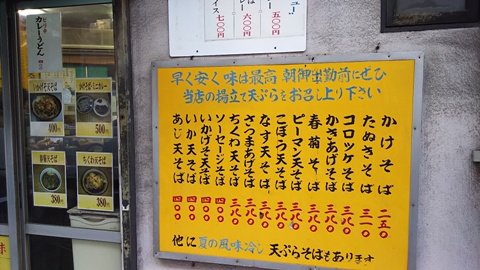 ピリ辛
カレーうどん
400円
500円
春菊天そば
ちくわ天そば
380円
380円
五〇〇
六〇〇
七〇〇
早く安く味は最高 朝御出勤前にぜひ
当店の揚立て天ぷらをお召し上り下さい
かけそば 二五〇
たぬきそば 三一〇
コロッケそば 三八〇
かきあげそば 三八〇
春菊そば 三八〇
ピーマン天そば 三八〇
ごぼう天そば 三八〇
なす天そば 三八〇
さつまあげそば 三八〇
ちくわ天そば 三八〇
ソーセージそば 四〇〇
いかげそ天そば 四〇〇
いか天そば 四〇〇
あじ天そば 四〇〇
他に夏の風味冷し天ぷらそばもあります